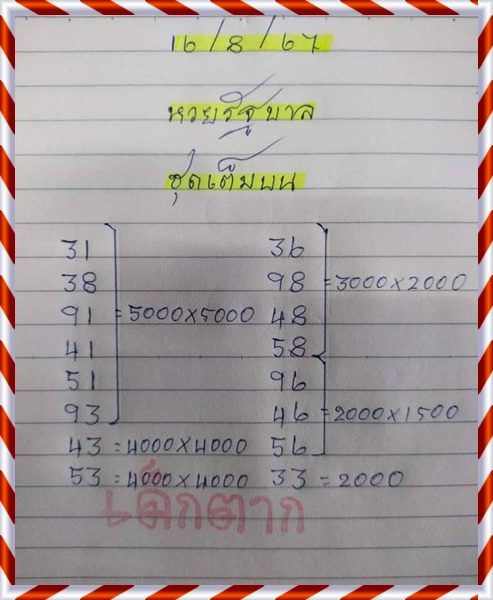 16/8/67
หวยรัฐบาล
ชุดเต็มบน
31 36
38 98 = 3000x2000
91 = 5000x5000 48
41 58
51 96
93 46 = 2000x1500
43 = 4000x4000 56
53 = 4000x4000 33 = 2000
เด็กตาก